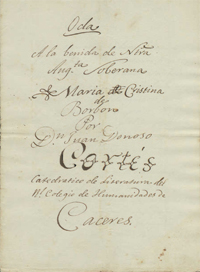 Oda
A la benida de Ntra
Aug.ta Soberana
D.a Maria de Cristina
de
Borbon
Por
Dn. Juan Donoso
Cortés
Catedratico de Literatura del
Rl. Colegio de Humanidades de
Caceres.